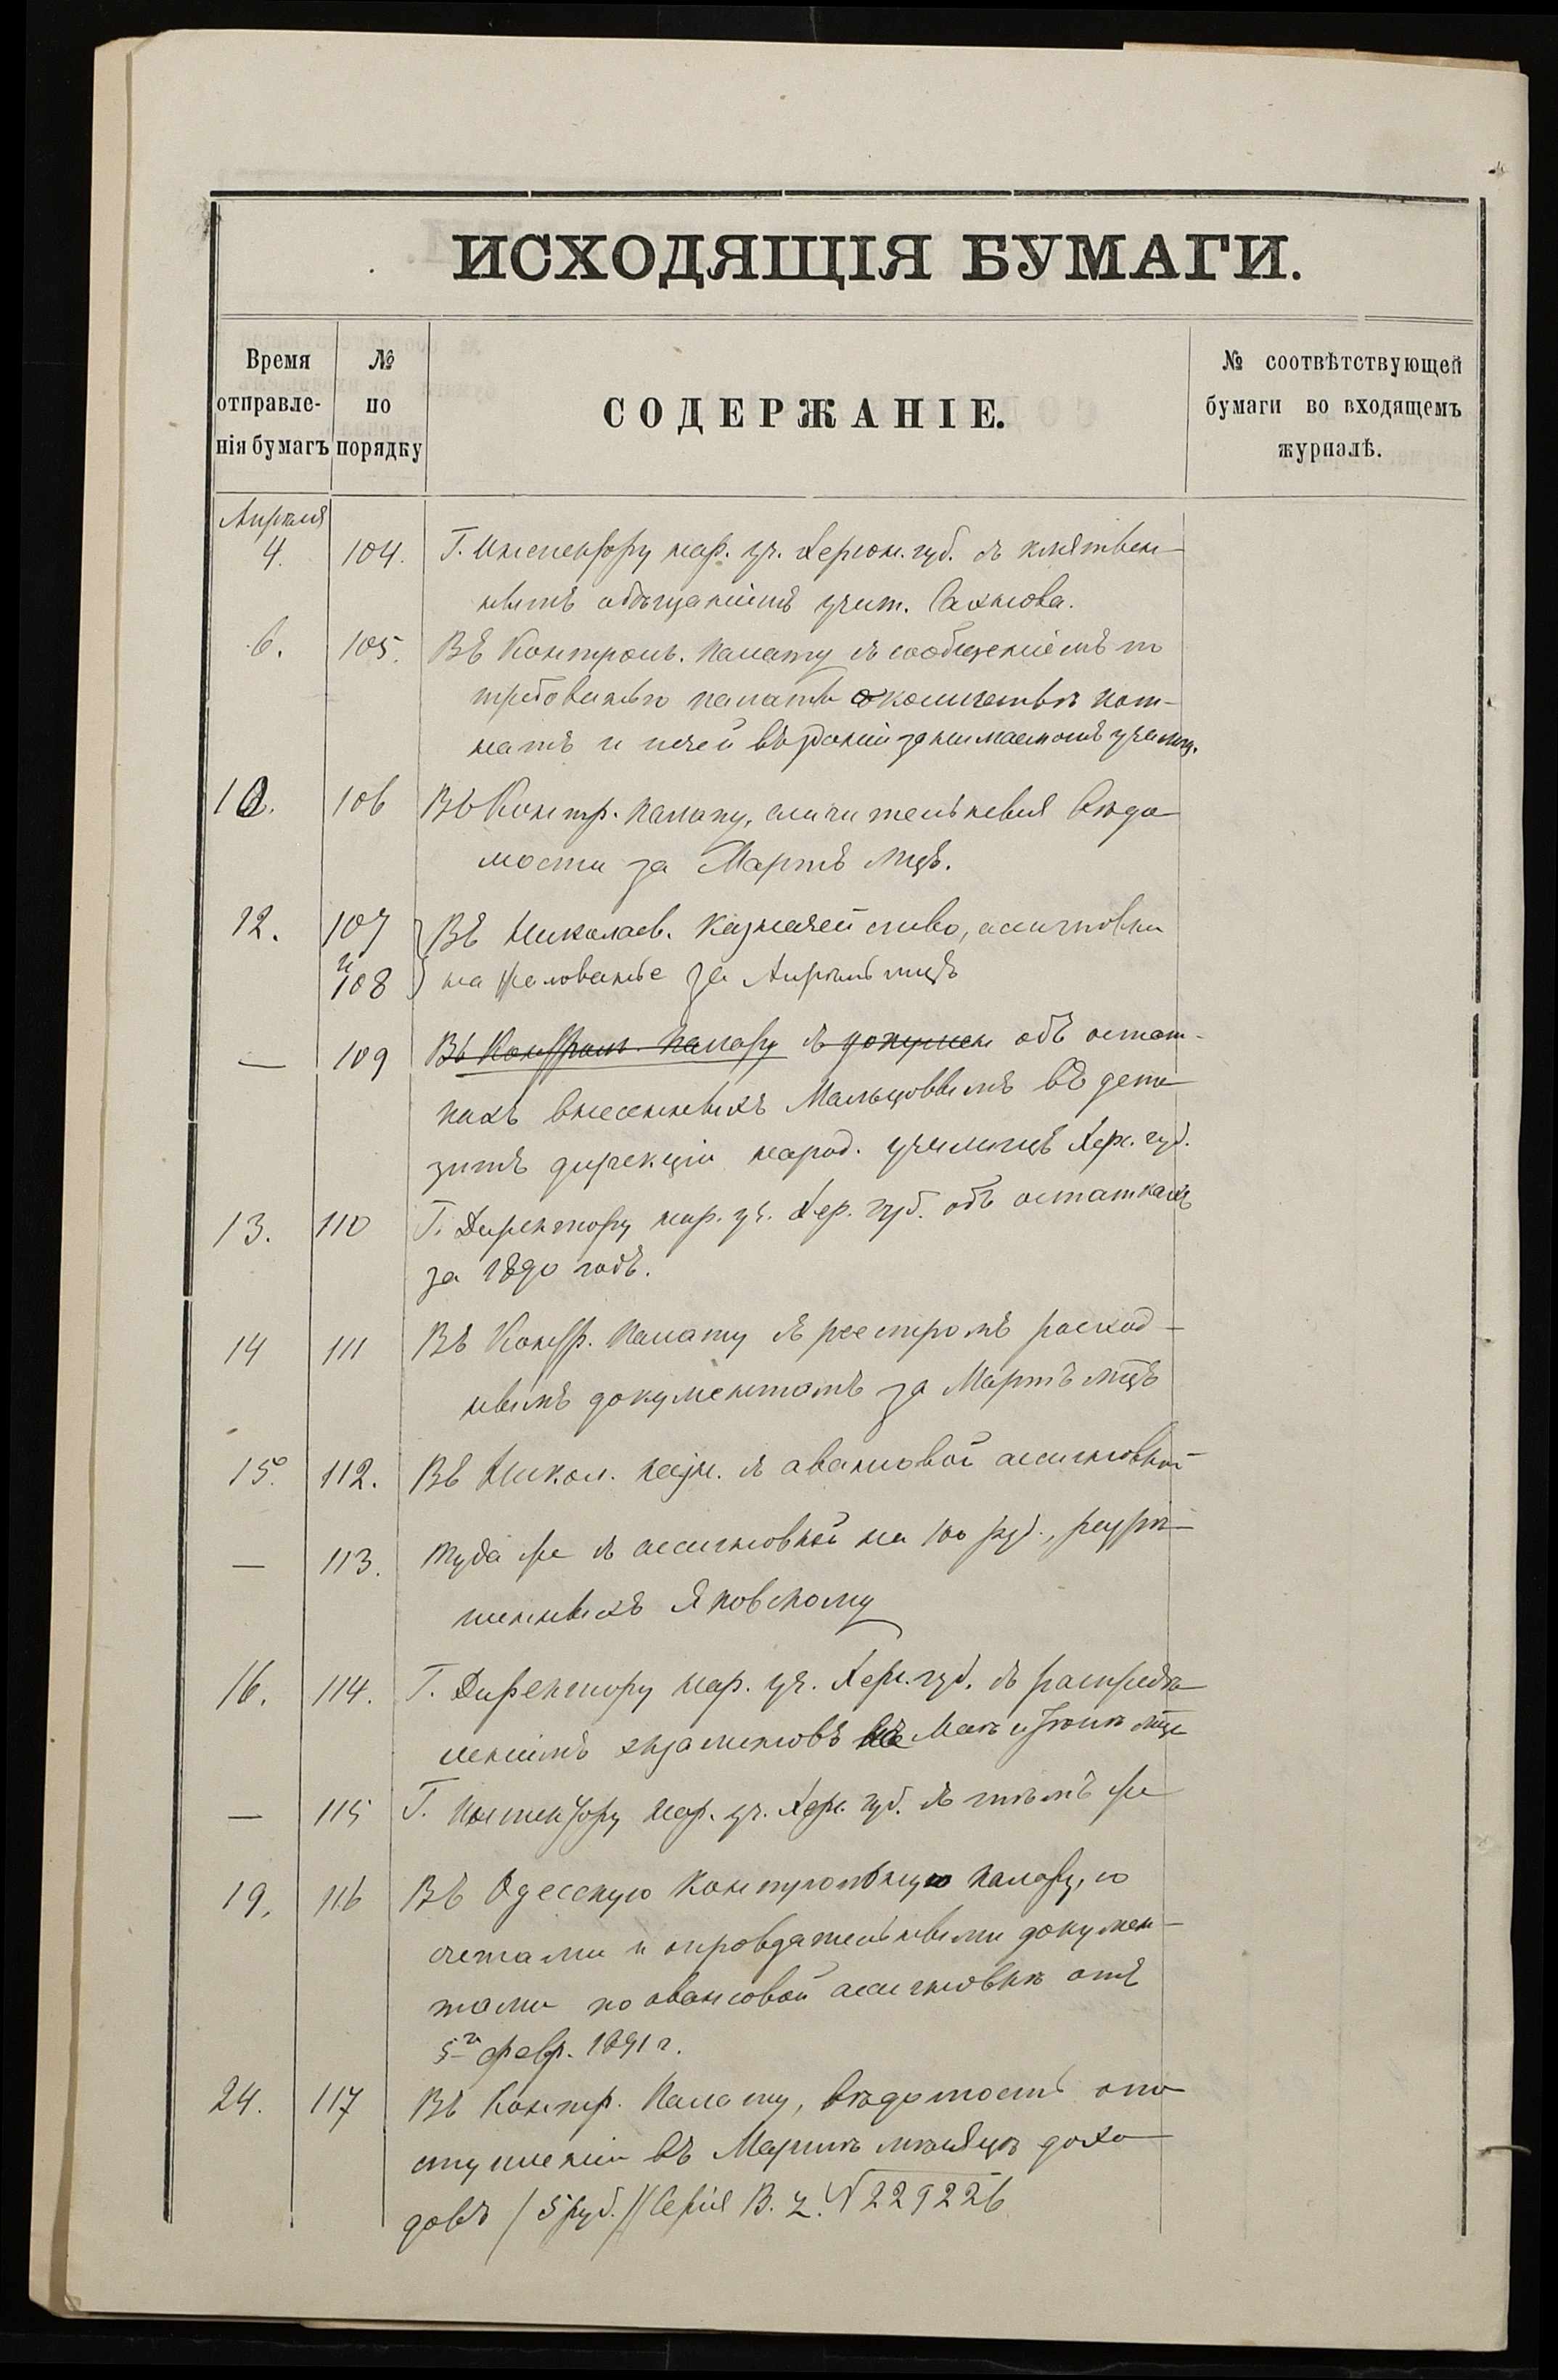 ИСХОДЯЩІЯ БУМАГИ.
Время отправле-нія бумагъ
№ по порядку
СОДЕРЖАНІЕ.
№ соотвѣтствующей бумаги во входящемъ журналѣ.
Апрѣля
4. 104. Г. Инспектору нар. уч. Херсон. губ. съ клятвен-
нымъ обѣщаніемъ учит. Сахнова.
6. 105. Въ Контрол. Палату съ сообщеніемъ по
требованію палаты о количествѣ ком-
натъ и печей въ зданіи занимаемомъ училищ.
10. 106 Въ Контр. Палату, сличительныя Вѣдо-
мости за Мартъ мцъ.
12. 107 Въ Николаев. Казначейство, ассигновки
и 108 на жалованье за Апрѣль мцъ
— 109 Въ Контрол. Палату съ докумен объ остат-
кахъ внесенныхъ Мальцовымъ въ депо-
зитъ дирекціи народ. училищъ Хер. губ.
13. 110 Г. Директору нар. уч. Хер. губ. объ остаткахъ
за 1890 годъ.
14 111 Въ Контр. Палату съ реестромъ расход-
нымъ документамъ за Мартъ мцъ
15. 112. Въ Никол. казн. съ авансовой ассигновкой
— 113. Туда же съ ассигновкой на 100 руб., разрѣ-
шенныхъ Яновскому
16. 114. Г. Директору нар. уч. Хер. губ. съ распредѣ-
леніемъ экзаменовъ въ Маѣ и Іюнѣ мцѣ
— 115 Г. Инспектору нар. уч. Хер. губ. съ тѣмъ же
19. 116 Въ Одесскую Контрольную Палату, со
счетами и оправдательными докумен-
тами по авансовой ассигновкѣ отъ
5го февр. 1891 г.
24. 117 Въ Контр. Палату, вѣдомость о по-
ступленіи въ Мартѣ мѣсяцѣ дохо-
довъ (5 руб.) (Серія В. Z. № 229226